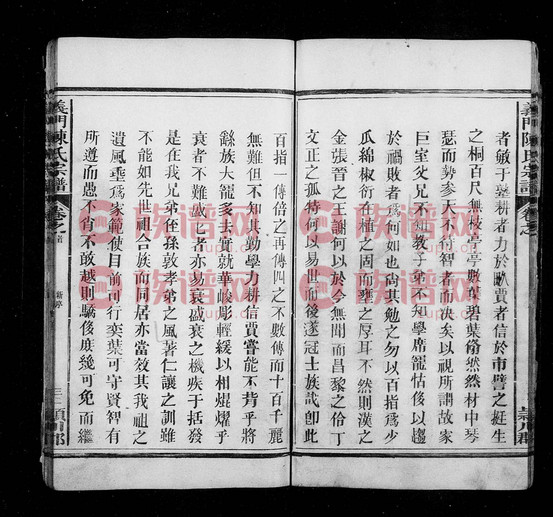 義門陳氏宗譜
卷之
潁川郡
者敏于藝耕者力於畎賈者信於市譬之挺生
之桐百尺無枝亭亭數葉碧葉翛然然材中琴
瑟而勢參天不待智者而决矣以視所謂故家
巨室父兄不知教子弟不知學席寵怙侈以趨
於禍敗者爲何如也尚其勉之勿以百指爲少
瓜綿椒衍在植之固而壅之厚耳不然則漢之
金張晉之王謝何以於今無聞而昌黎之伶丁
文正之孤特何以易世而後遂冠士族哉卽此
百指一傳倍之再傳四之不數傳而十百千麗
無難但不知其勤學力耕信賈嘗能不背乎將
繇族大寵多去實就華峻彫輕緩以相焜燿乎
衰者不難盛已者亦易衰盛衰之機疾于括發
是在我兄弟侄孫敦孝弟之風著仁讓之訓雖
不能如先世祖合族而同居亦當效其我祖之
遺風垂爲家範使目前可行奕葉可守賢智有
所遵而愚不肖不敢越則驕侈庶幾可免而繼
義門陳氏宗譜
卷之首
新序
三
潁川郡
族谱网
族谱网
族谱网
族谱网